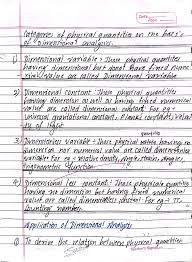 Date
Categories of physical quantities on the basis
of "Dimensional analysis.
1) Dimensional variable :- Those physical quantities
having dimension but donot have fixed nume
rical value are called Dimensional variable
2) Dimensional constant :- Those physical quantities
having dimension as well as having fixed numerical
value are called dimensional constant. For eg:-
universal gravitational constant, Planks constant, veloci
ty of light
quantities
3) Dimensionless variable :- Those physical having no
dimension not numerical value are called dimensionless
variable. For eg:- relative density, angle, strain,
Trigonometric function
4) Dimensional less constant :- Those physical quantities
having no dimension but having fixed numerical
value are called dimensionless constant For eg:- π
Counting number.
Application of Dimensional Analysis
1) To derive the relation between physical quantities